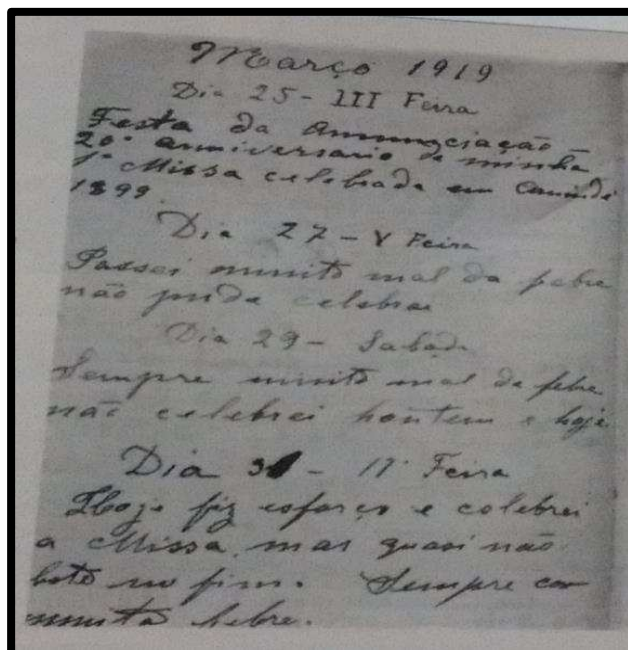 Março 1919
Dia 25 - III Feira
Festa da Annunciação -
20º anniversario de minha
1ª Missa celebrada em Canindé
1899
Dia 27 - V Feira
Passei muito mal da febre
não pude celebrar
Dia 29 - Sabado
Sempre muito mal da febre
não celebrei hontem e hoje
Dia 31 - IIª Feira
Hoje fiz esforço e celebrei
a Missa, mas quasi não
boto no fim. Sempre com
muita febre.